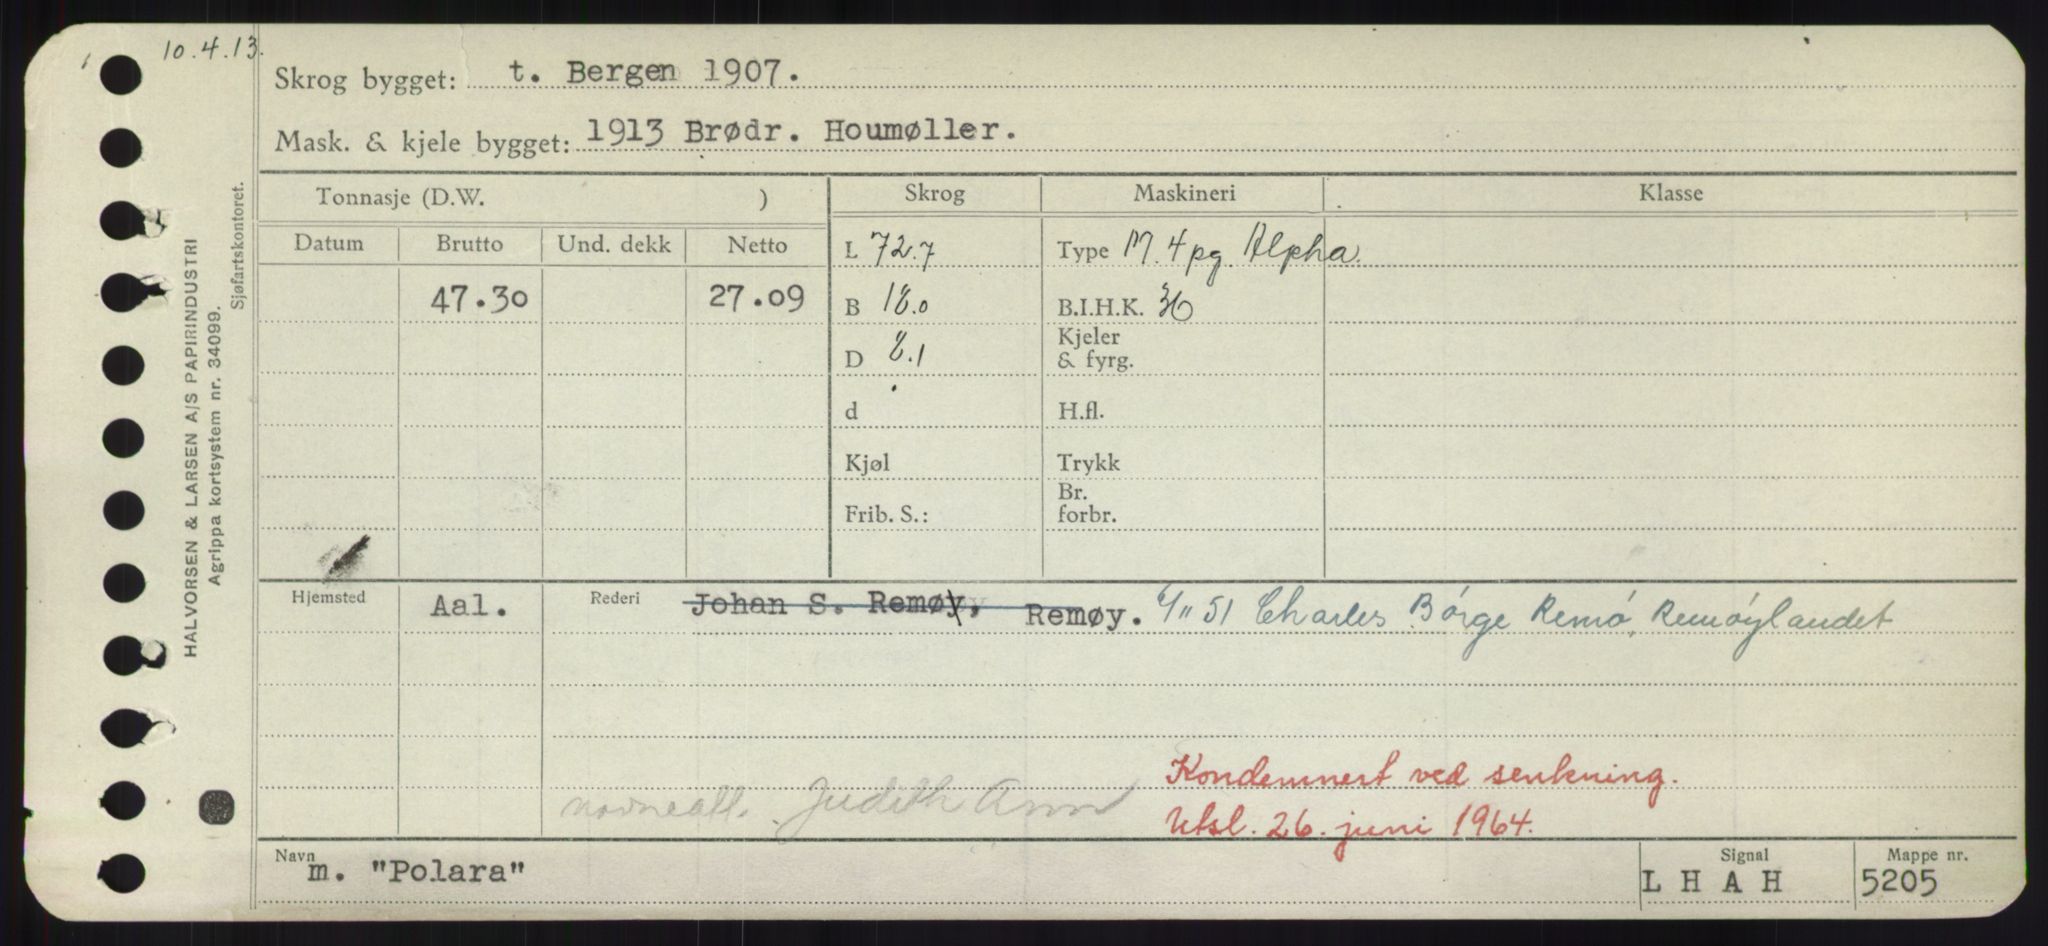 10.4.13.
Skrog bygget: t. Bergen 1907.
Mask. & kjele bygget: 1913 Brødr. Houmøller.
Tonnasje (D.W. ) Skrog Maskineri Klasse
Datum Brutto Und. dekk Netto L 72.7 Type M. 4pg. Alpha.
47.30 27.09 B 18.0 B.I.H.K. 36
D 8.1 Kjeler
& fyrg.
d H.fl.
Kjøl Trykk
Frib. S.: Br.
forbr.
Hjemsted Aal. Rederi Johan S. Remøy, Remøy. 6/11 51 Charles Børge Remø, Remøylandet
Kondemnert ved senkning.
navneall. Judith Ann Utsl. 26. juni 1964.
Navn m. "Polara" Signal L H A H Mappe nr. 5205
HALVORSEN & LARSEN A/S PAPIRINDUSTRI
Agrippa kortsystem nr. 34099.
Sjøfartskontoret.